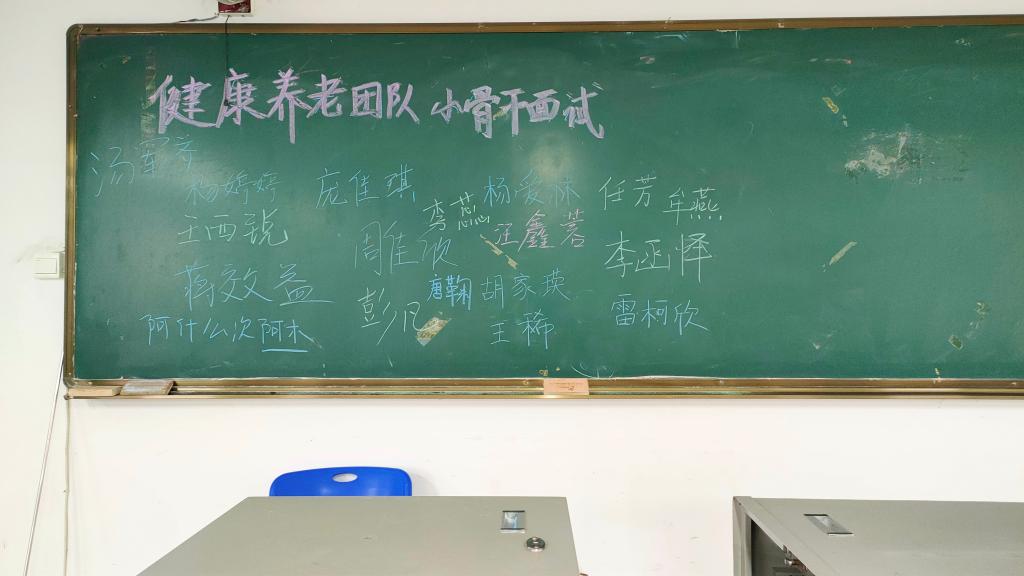 健康养老团队 小骨干面试
杨婷婷 庞佳琪 李蕊 杨爱林 任芳 牟燕
王西锐 周佳欣 汪鑫蓉 李函怿
蒋效益 彭凡 唐鞠 胡家瑛 雷柯欣
阿什么次阿木 王稀